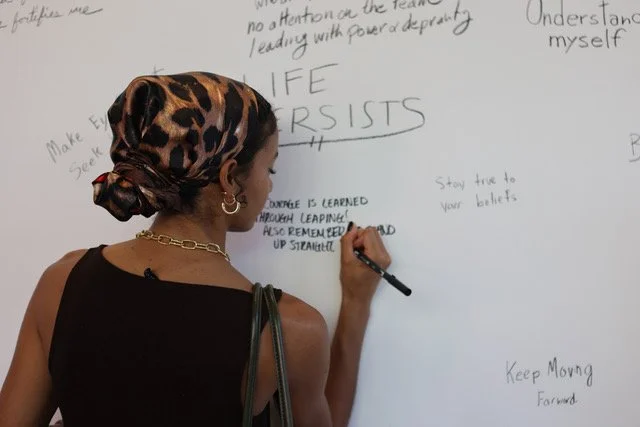 fortifies me
no attention on the team
leading with power & depravity
Understand
myself
LIFE
ERSISTS
Make
Seek
COURAGE IS LEARNED
THROUGH LEAPING!
ALSO REMEMBER
UP STRAIGHT
Stay true to
your beliefs
Keep Moving
Forward